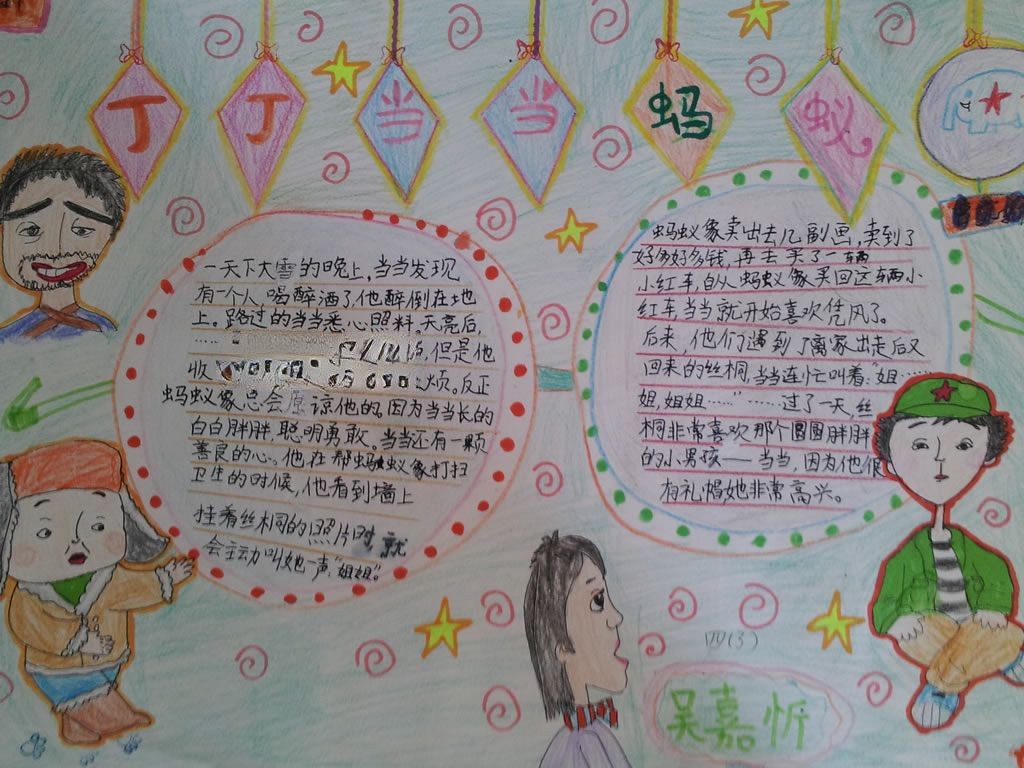 丁丁当当蚂蚁
一天下大雪的晚上,当当发现
有一个人,喝醉酒了,他醉倒在地
上。路过的当当悉心照料,天亮后,
但是他
收
烦。反正
蚂蚁象总会原谅他的,因为当当长的
白白胖胖,聪明勇敢。当当还有一颗
善良的心。他在帮蚂蚁象打扫
卫生的时候,他看到墙上
挂着丝桐的照片时就
会主动叫她一声“姐姐”。
蚂蚁象卖出去几副画,卖到了
好多好多钱,再去买了一辆
小红车,自从蚂蚁象买回这辆小
红车,当当就开始喜欢凭风了。
后来,他们遇到了离家出走后又
回来的丝桐,当当连忙叫着:“姐……
姐,姐姐……”……过了一天,丝
桐非常喜欢那个圆圆胖胖
的小男孩——当当,因为他很
有礼帽她非常高兴。
四(3)
吴嘉忻